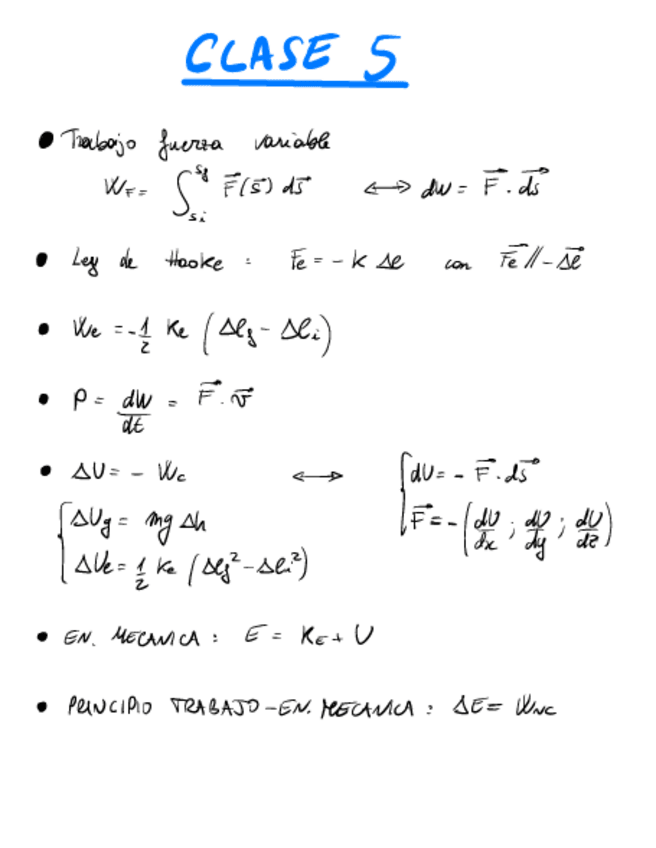 CLASE 5
• Trabajo fuerza variable
W_F = ∫_{si}^{sf} F⃗(s⃗) ds⃗ ⟷ dw = F⃗ . ds⃗
• Ley de Hooke : Fe = - K Δl con F⃗e // - Δl⃗
• We = - 1/2 Ke (Δlf - Δli)
• P = dW/dt = F⃗ . v⃗
• ΔU = - Wc ⟷ { dU = - F⃗ . ds⃗
{ ΔUg = mg Δh F⃗ = - (dU/dx ; dU/dy ; dU/dz)
ΔUe = 1/2 Ke (Δlf² - Δli²)
• EN. MECANICA : E = KE + U
• PRINCIPIO TRABAJO-EN. MECANICA : ΔE = WNC